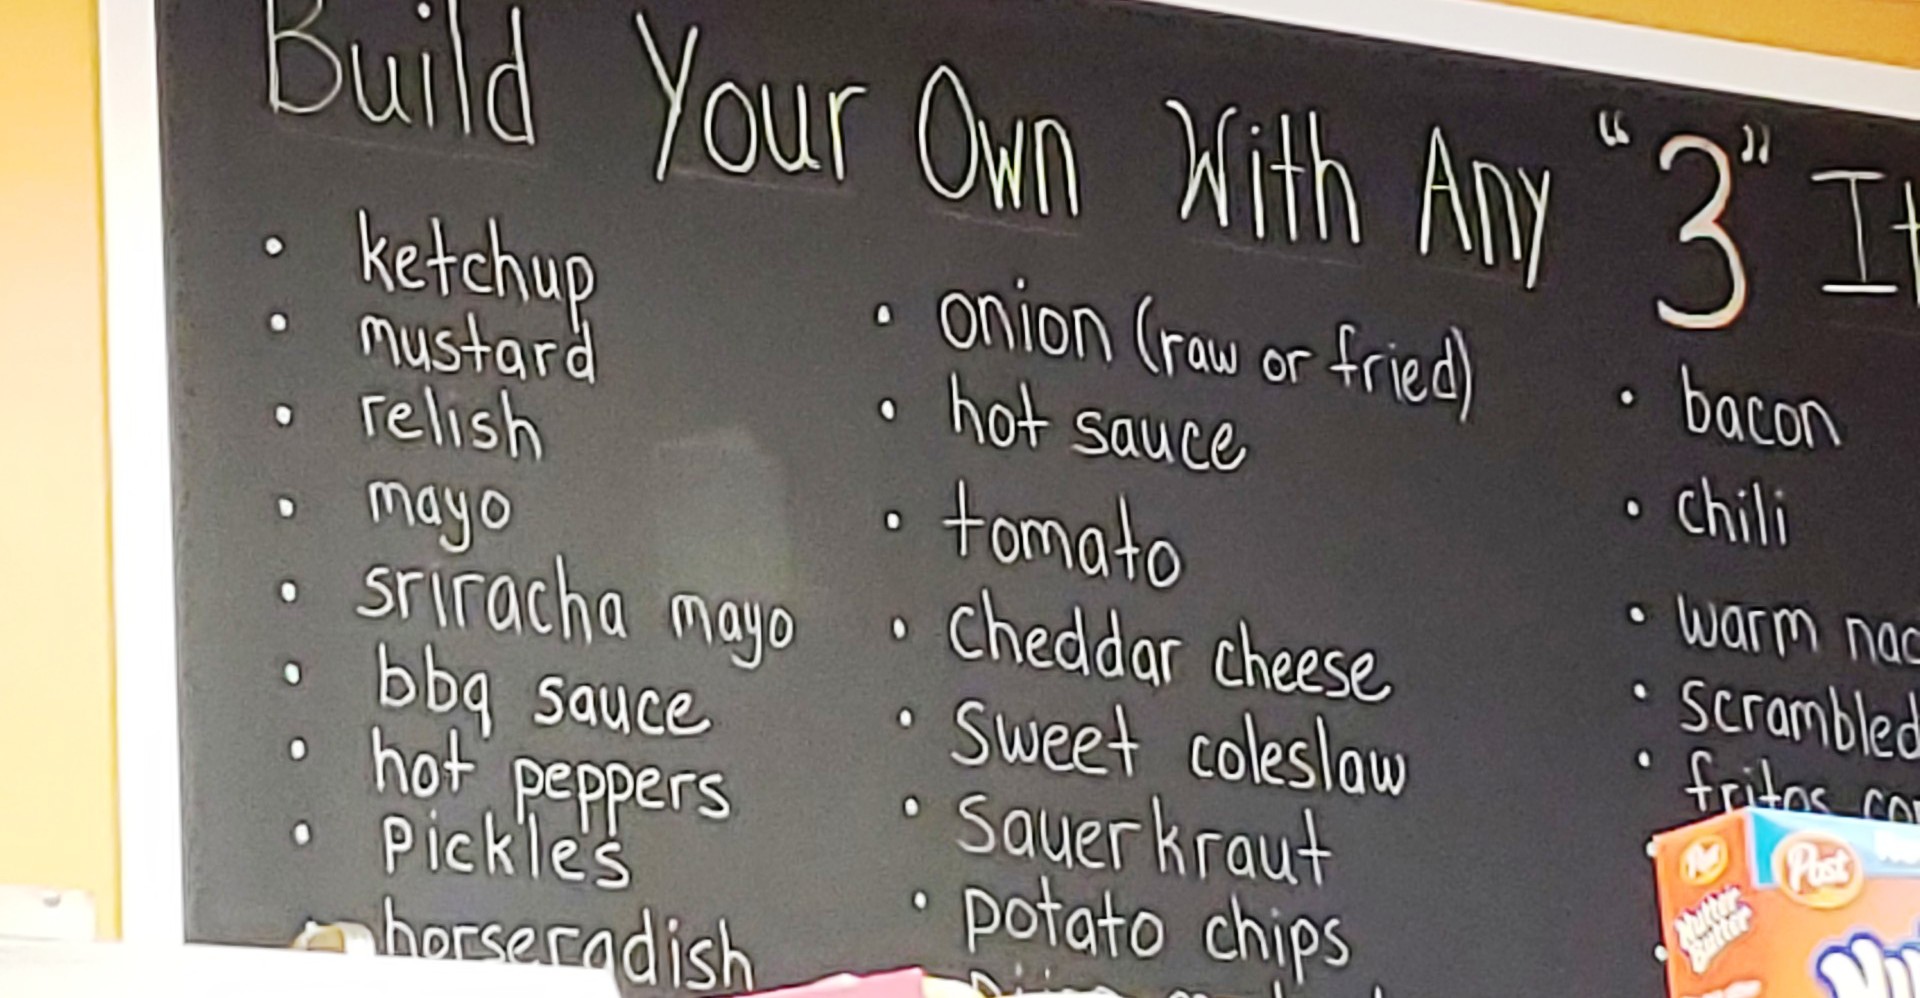 Build Your Own With Any "3" It
• ketchup
• mustard
• relish
• mayo
• sriracha mayo
• bbq sauce
• hot peppers
• Pickles
horseradish
• onion (raw or fried)
• hot sauce
• tomato
• cheddar cheese
• Sweet coleslaw
• Sauerkraut
• potato chips
• bacon
• chili
• warm nac
• scrambled
• fritos co
Post
Post
Nutter
Butter
Nu